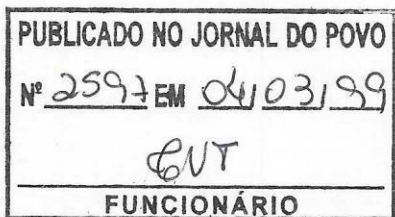 PUBLICADO NO JORNAL DO POVO
Nº 2597 EM 04/03/99
FUNCIONÁRIO